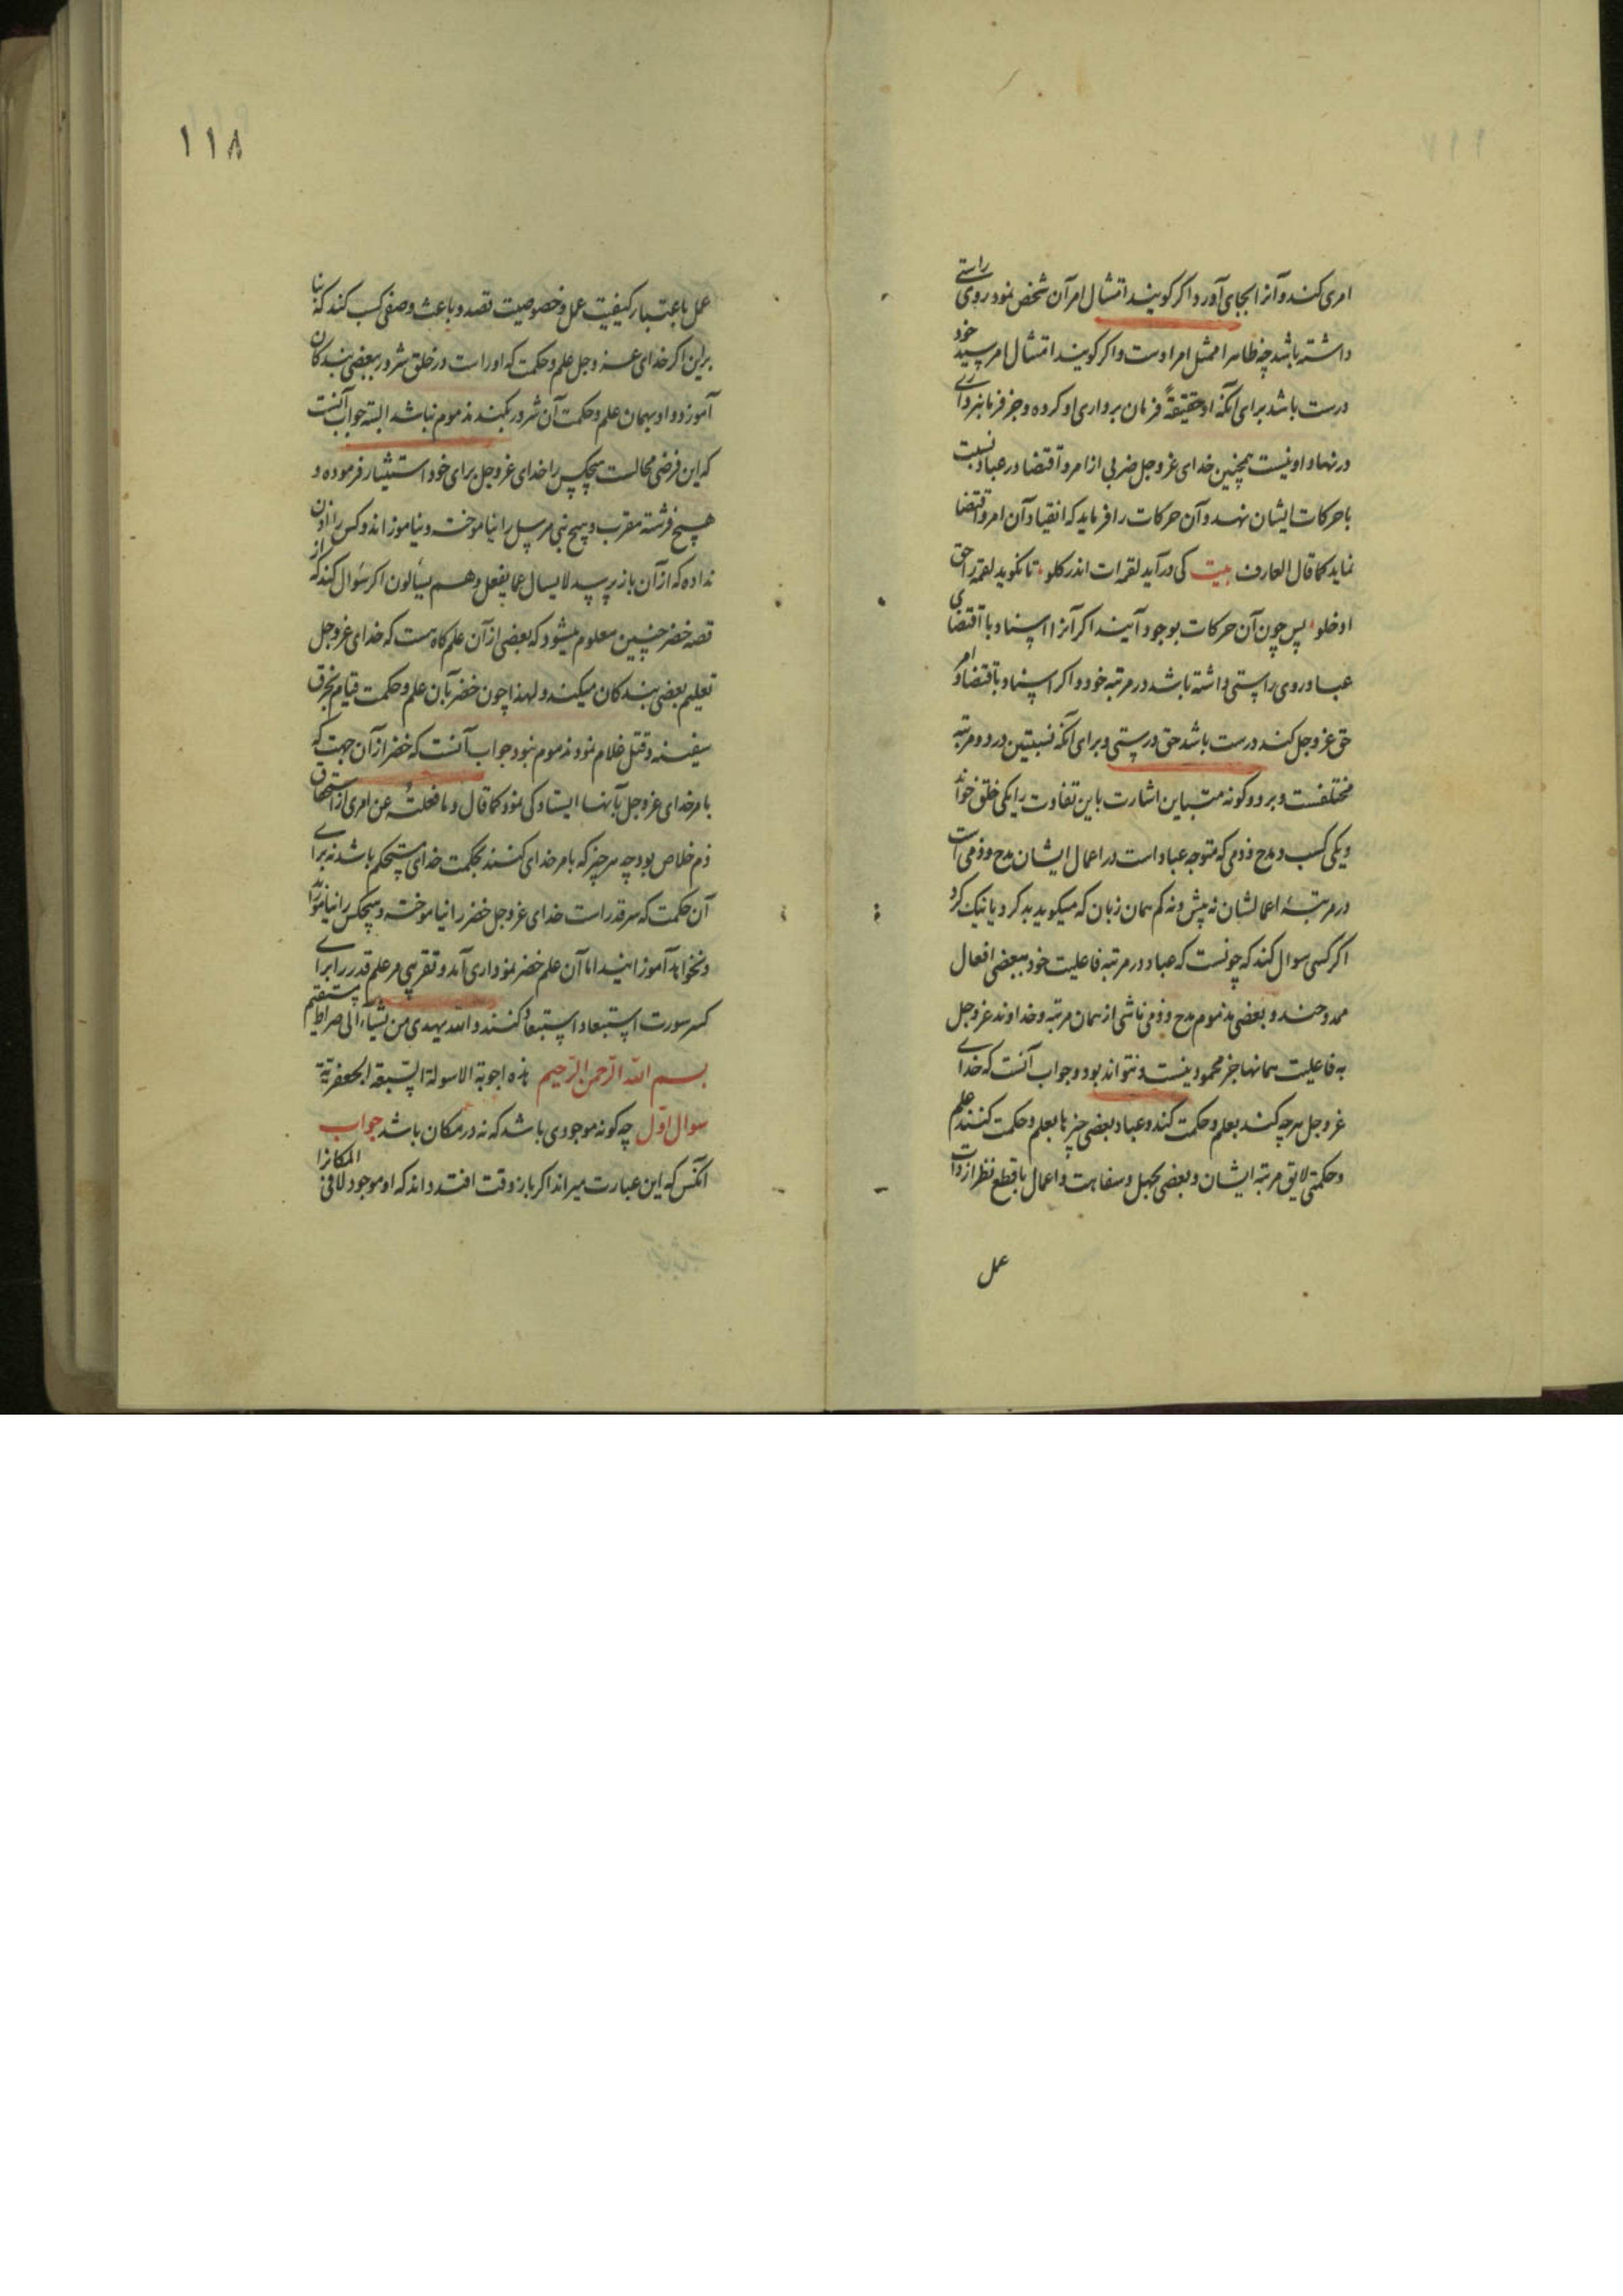 امری کند و آنرا بجای آورد اگر گویند امتثال امر آن شخص نمود روی راستی
داشته باشد چه ظاهرا ممثل امر اوست و اگر گویند امتثال امر سید خود
درست باشد برای آنکه او حقیقةً فرمان برداری او کرده و جز فرمانبرداری
در نهاد او نیست همچنین خدای عز و جل ضربی از امر و اقتضا در عباد نسبت
با حرکات ایشان نهد و آن حرکات را فرماید که انقیاد آن امر و اقتضا
نماید کما قال العارف بیت کی درآید لقمه‌ات اندر کلو تا نکوید لقمه را حق
ادخلو پس چون آن حرکات بوجود آیند اگر آنرا اسناد با اقتضای
عباد روی راستی داشته باشد در مرتبه خود و اگر اسناد با قتضا و امر
حق عز و جل کند درست باشد حق درستی و برای آنکه نسبتین در دو مرتبه
مختلفست و بر دو کونه متباین اشارت باین تفاوت را یکی خلق خواند
و یکی کسب و مدح و ذمی که متوجه عباد است در اعمال ایشان مدح و ذمی است
در مرتبهٔ اعمالشان نه بیش و نه کم همان زبان که میکوید بد کرد یا نیک کرد
اگر کسی سوال کند که چونست که عباد در مرتبه فاعلیت خود ببعضی افعال
ممدوحند و بعضی مذموم مدح و ذمی ناشی از همان مرتبه و خداوند عز و جل
به فاعلیت همانها جز محمود نیست و نتواند بود و جواب آنست که خدای
عز و جل هر چه کند بعلم و حکمت کند و عباد بعضی چیزها بعلم و حکمت کنند علم
و حکمتی لایق مرتبه ایشان و بعضی بجهل و سفاهت و اعمال با قطع نظر از ذات
عمل
۱۱۸
عمل باعتبار کیفیت عمل و خصوصیت قصد و باعث وصفی کسب کند که بنا
برین اگر خدای عز و جل علم و حکمت که او راست در خلق شرور ببعضی بندکان
آموزد و او بهمان علم و حکمت آن شرور بکند مذموم نباشد البته جواب آنست
که این فرضی محالست هیچکس را خدای عز و جل برای خود استیثار فرموده و
هیچ فرشته مقرب و هیچ نبی مرسل را نیاموخته و نیاموزاند و کس را اذن
نداده که از آن باز پرسد لا یسال عما یفعل و هم یسألون اگر سوال کند که از
قصه خضر چنین معلوم میشود که بعضی از آن علم کاه هست که خدای عز و جل
تعلیم بعضی بندکان میکند و لهذا چون خضر بآن علم و حکمت قیام بخرق
سفینه و قتل غلام نمود مذموم نبود جواب آنست که خضر از آن جهت که
بامر خدای عز و جل بآنها ایستادکی نمود کما قال و ما فعلته عن امری از استحقاق
ذم خلاص بود چه هر چیز که بامر خدای کنند بحکمت خدای مستحکم باشد نه برای
آن حکمت که سر قدر است خدای عز و جل خضر را نیاموخته و هیچکس را نیاموزد
و نخواهد آموزانید اما آن علم خضر نموداری آمد و تقریبی مر علم قدر را برای
کسر سورت استبعاد استبعاد کنند و الله یهدی من یشاء الی صراط مستقیم
بسم الله الرحمن الرحیم هذه اجوبة الاسولة السبعة الجعفریة
سوال اول چه کونه موجودی باشد که نه در مکان باشد جواب
آنکس که این عبارت میراند اگر باز وقت افتد داند که او موجود لا فی المکانرا